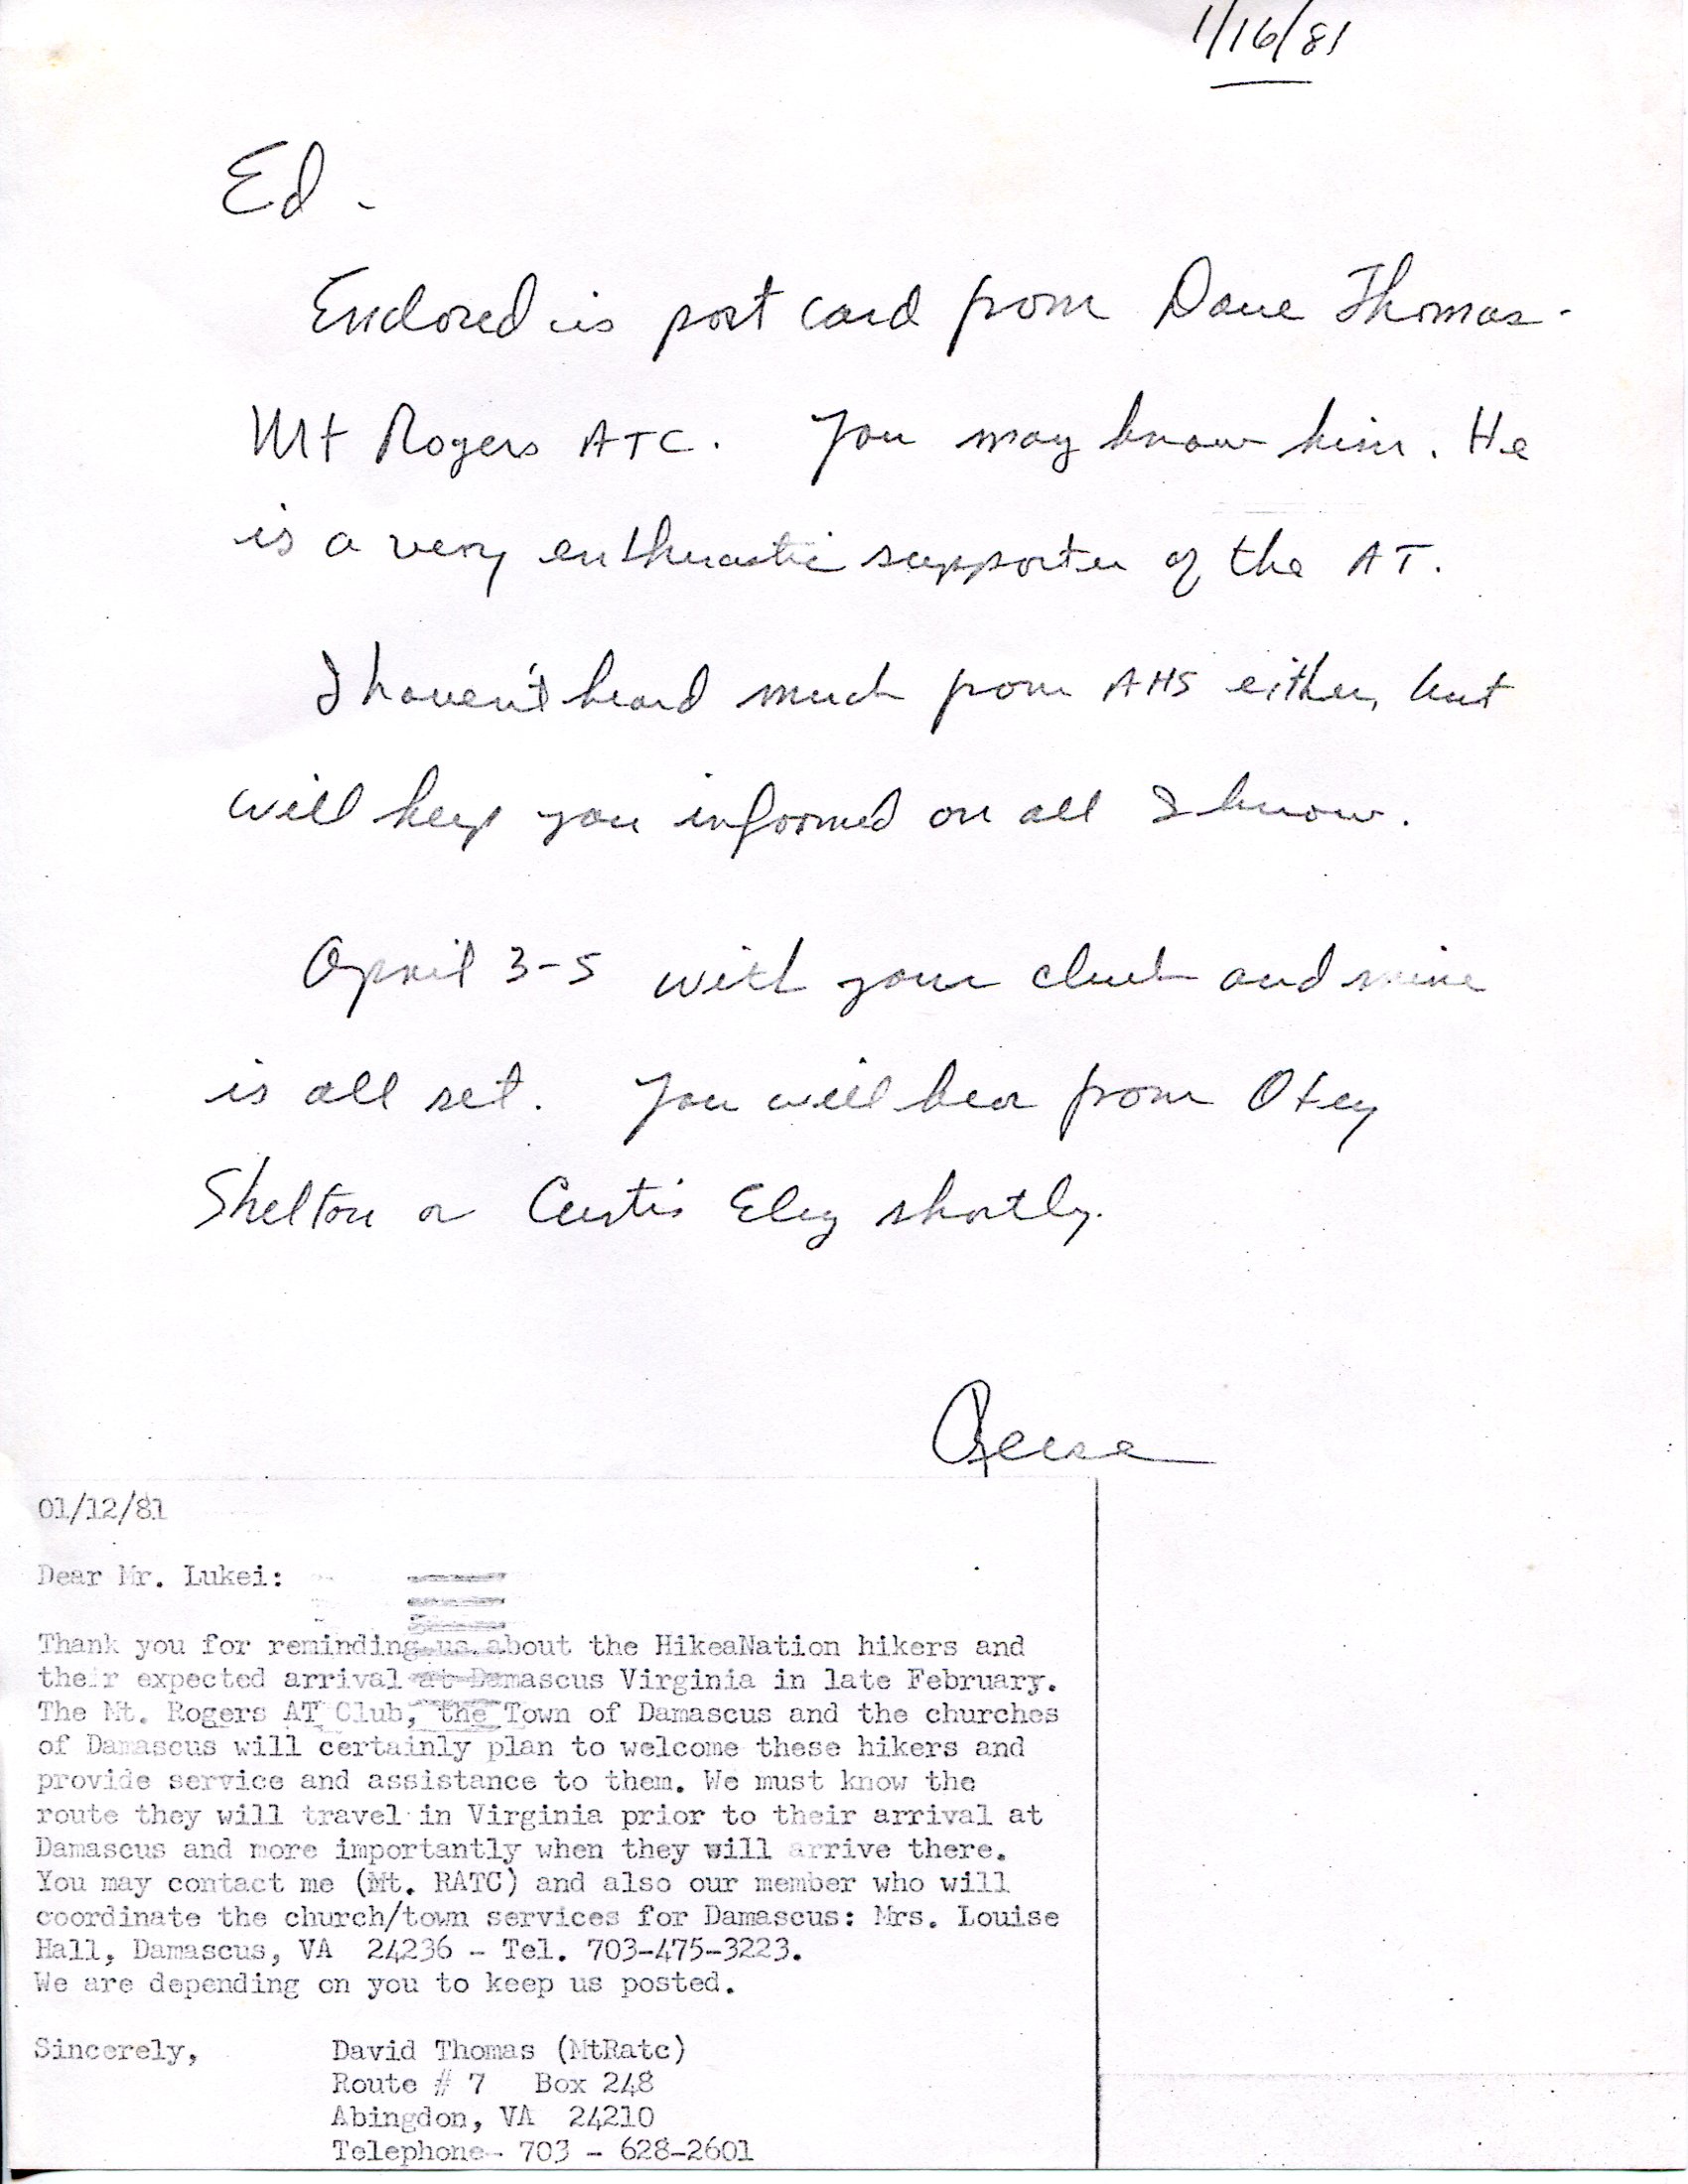 1/16/81
Ed -
Enclosed is post card from Dave Thomas -
Mt Rogers ATC. You may know him. He
is a very enthusiastic supporter of the AT.
I haven't heard much from AHS either, but
will keep you informed on all I know.
April 3-5 with your club and mine
is all set. You will hear from Otey
Shelton or Curtis Ely shortly.
Reese
01/12/81
Dear Mr. Lukei:
Thank you for reminding us about the HikeaNation hikers and
their expected arrival at Damascus Virginia in late February.
The Mt. Rogers AT Club, the Town of Damascus and the churches
of Damascus will certainly plan to welcome these hikers and
provide service and assistance to them. We must know the
route they will travel in Virginia prior to their arrival at
Damascus and more importantly when they will arrive there.
You may contact me (Mt. RATC) and also our member who will
coordinate the church/town services for Damascus: Mrs. Louise
Hall, Damascus, VA 24236 - Tel. 703-475-3223.
We are depending on you to keep us posted.
Sincerely, David Thomas (MtRatc)
Route # 7 Box 248
Abingdon, VA 24210
Telephone- 703 - 628-2601